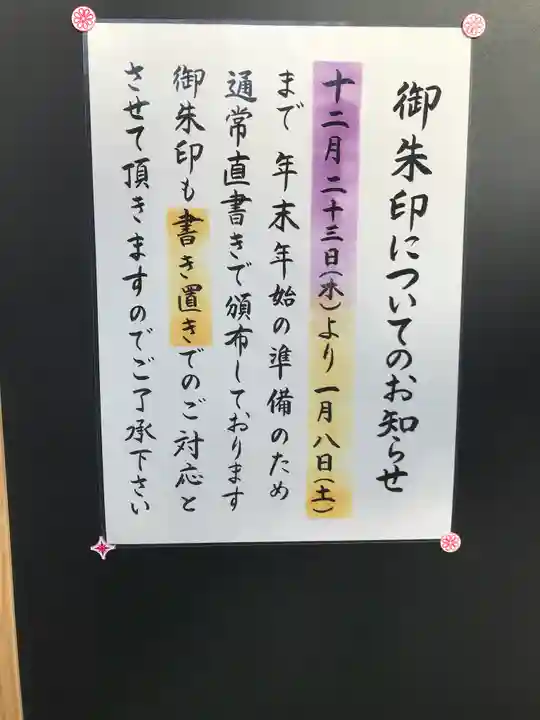 御朱印についてのお知らせ
十二月二十三日(水)より一月八日(土)
まで年末年始の準備のため
通常直書きで頒布しております
御朱印も書き置きでのご対応と
させて頂きますのでご了承下さい